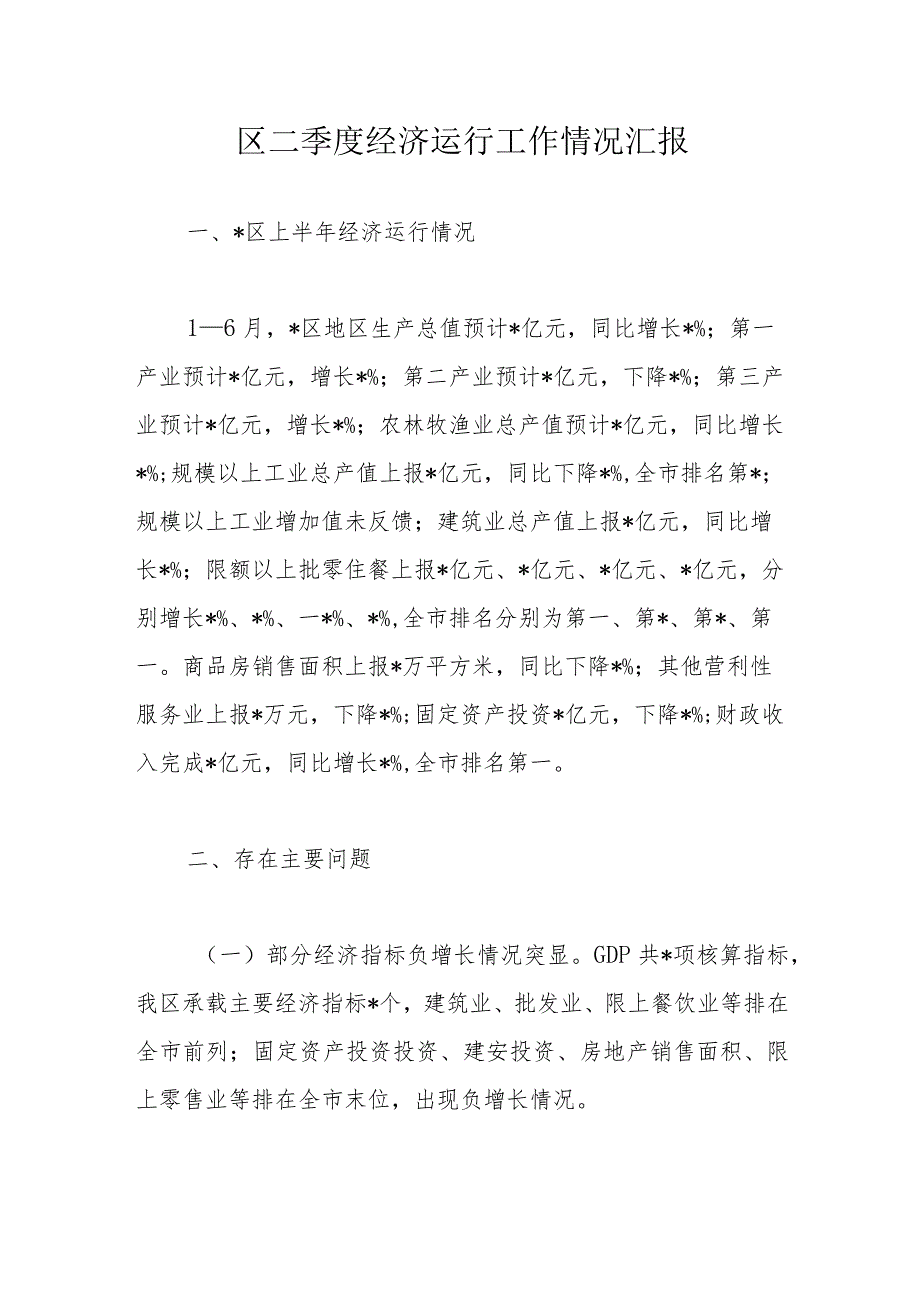 区二季度经济运行工作情况汇报
一、*区上半年经济运行情况
1—6月，*区地区生产总值预计*亿元，同比增长*%；第一
产业预计*亿元，增长*%；第二产业预计*亿元，下降*%；第三产
业预计*亿元，增长*%；农林牧渔业总产值预计*亿元，同比增长
*%;规模以上工业总产值上报*亿元，同比下降*%,全市排名第*；
规模以上工业增加值未反馈；建筑业总产值上报*亿元，同比增
长*%；限额以上批零住餐上报*亿元、*亿元、*亿元、*亿元，分
别增长*%、*%、一*%、*%,全市排名分别为第一、第*、第*、第
一。商品房销售面积上报*万平方米，同比下降*%；其他营利性
服务业上报*万元，下降*%;固定资产投资*亿元，下降*%;财政收
入完成*亿元，同比增长*%,全市排名第一。
二、存在主要问题
（一）部分经济指标负增长情况突显。GDP共*项核算指标，
我区承载主要经济指标*个，建筑业、批发业、限上餐饮业等排在
全市前列；固定资产投资投资、建安投资、房地产销售面积、限
上零售业等排在全市末位，出现负增长情况。